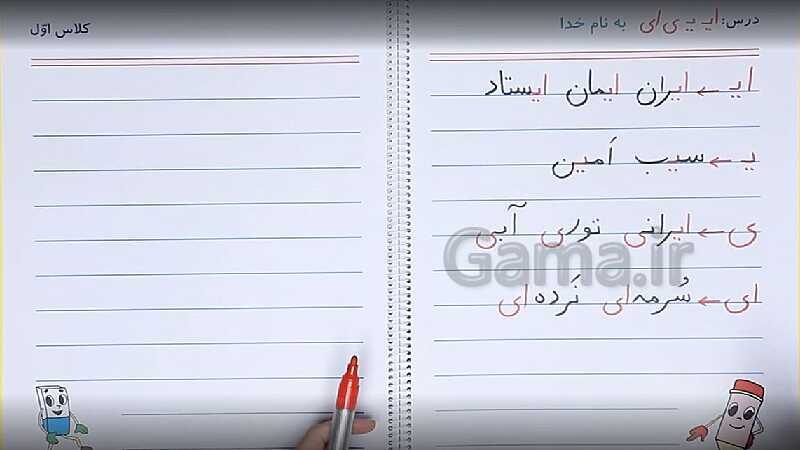 درس: ایـ ـیـ ی ای به نام خدا
کلاس اوّل
ایـ ← ایران ایمان ایستاد
ـیـ ← سیب اَمین
ی ← ایرانی توری آبی
ای ← سُرمه‌ای کَرده‌ای
Gama.ir